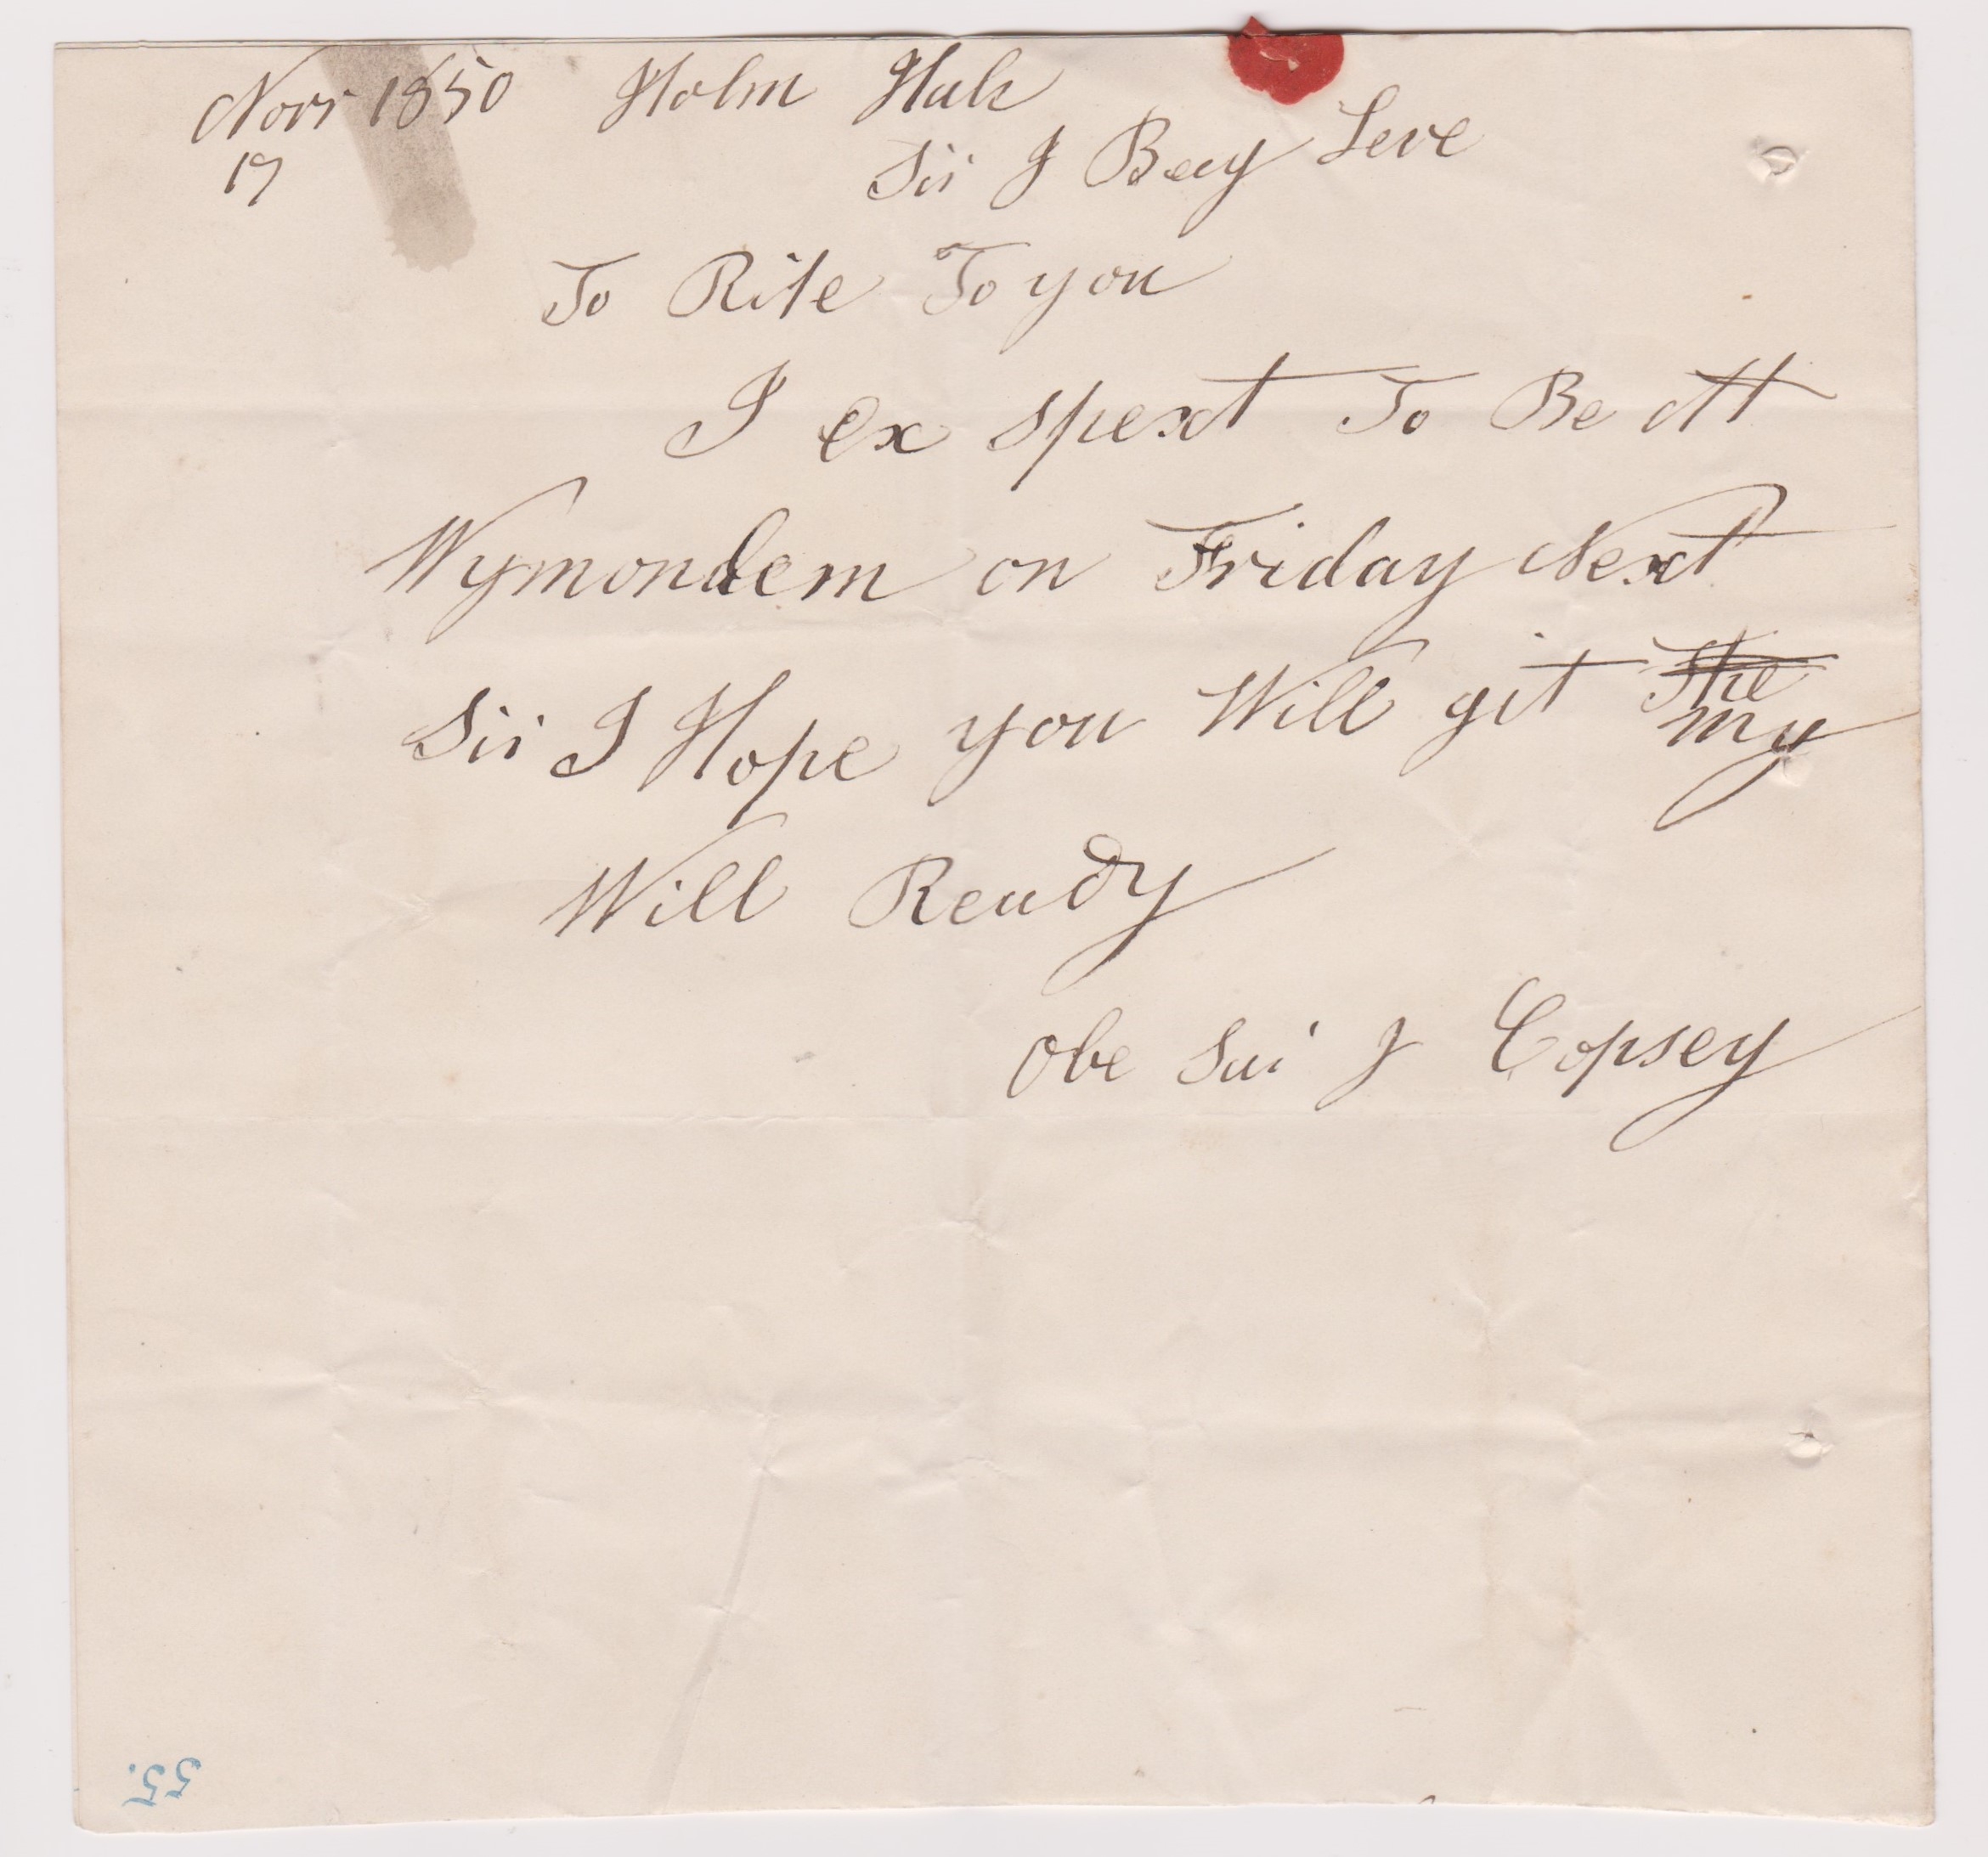 Novr 1850 Holm Hale
17
Sir I Beg Leve
To Rite To you
I ex spext To Be Att
Wymondem on Friday Next
Sir I Hope you Will git The
my
Will Ready
Obe Sur J Copsey
55.